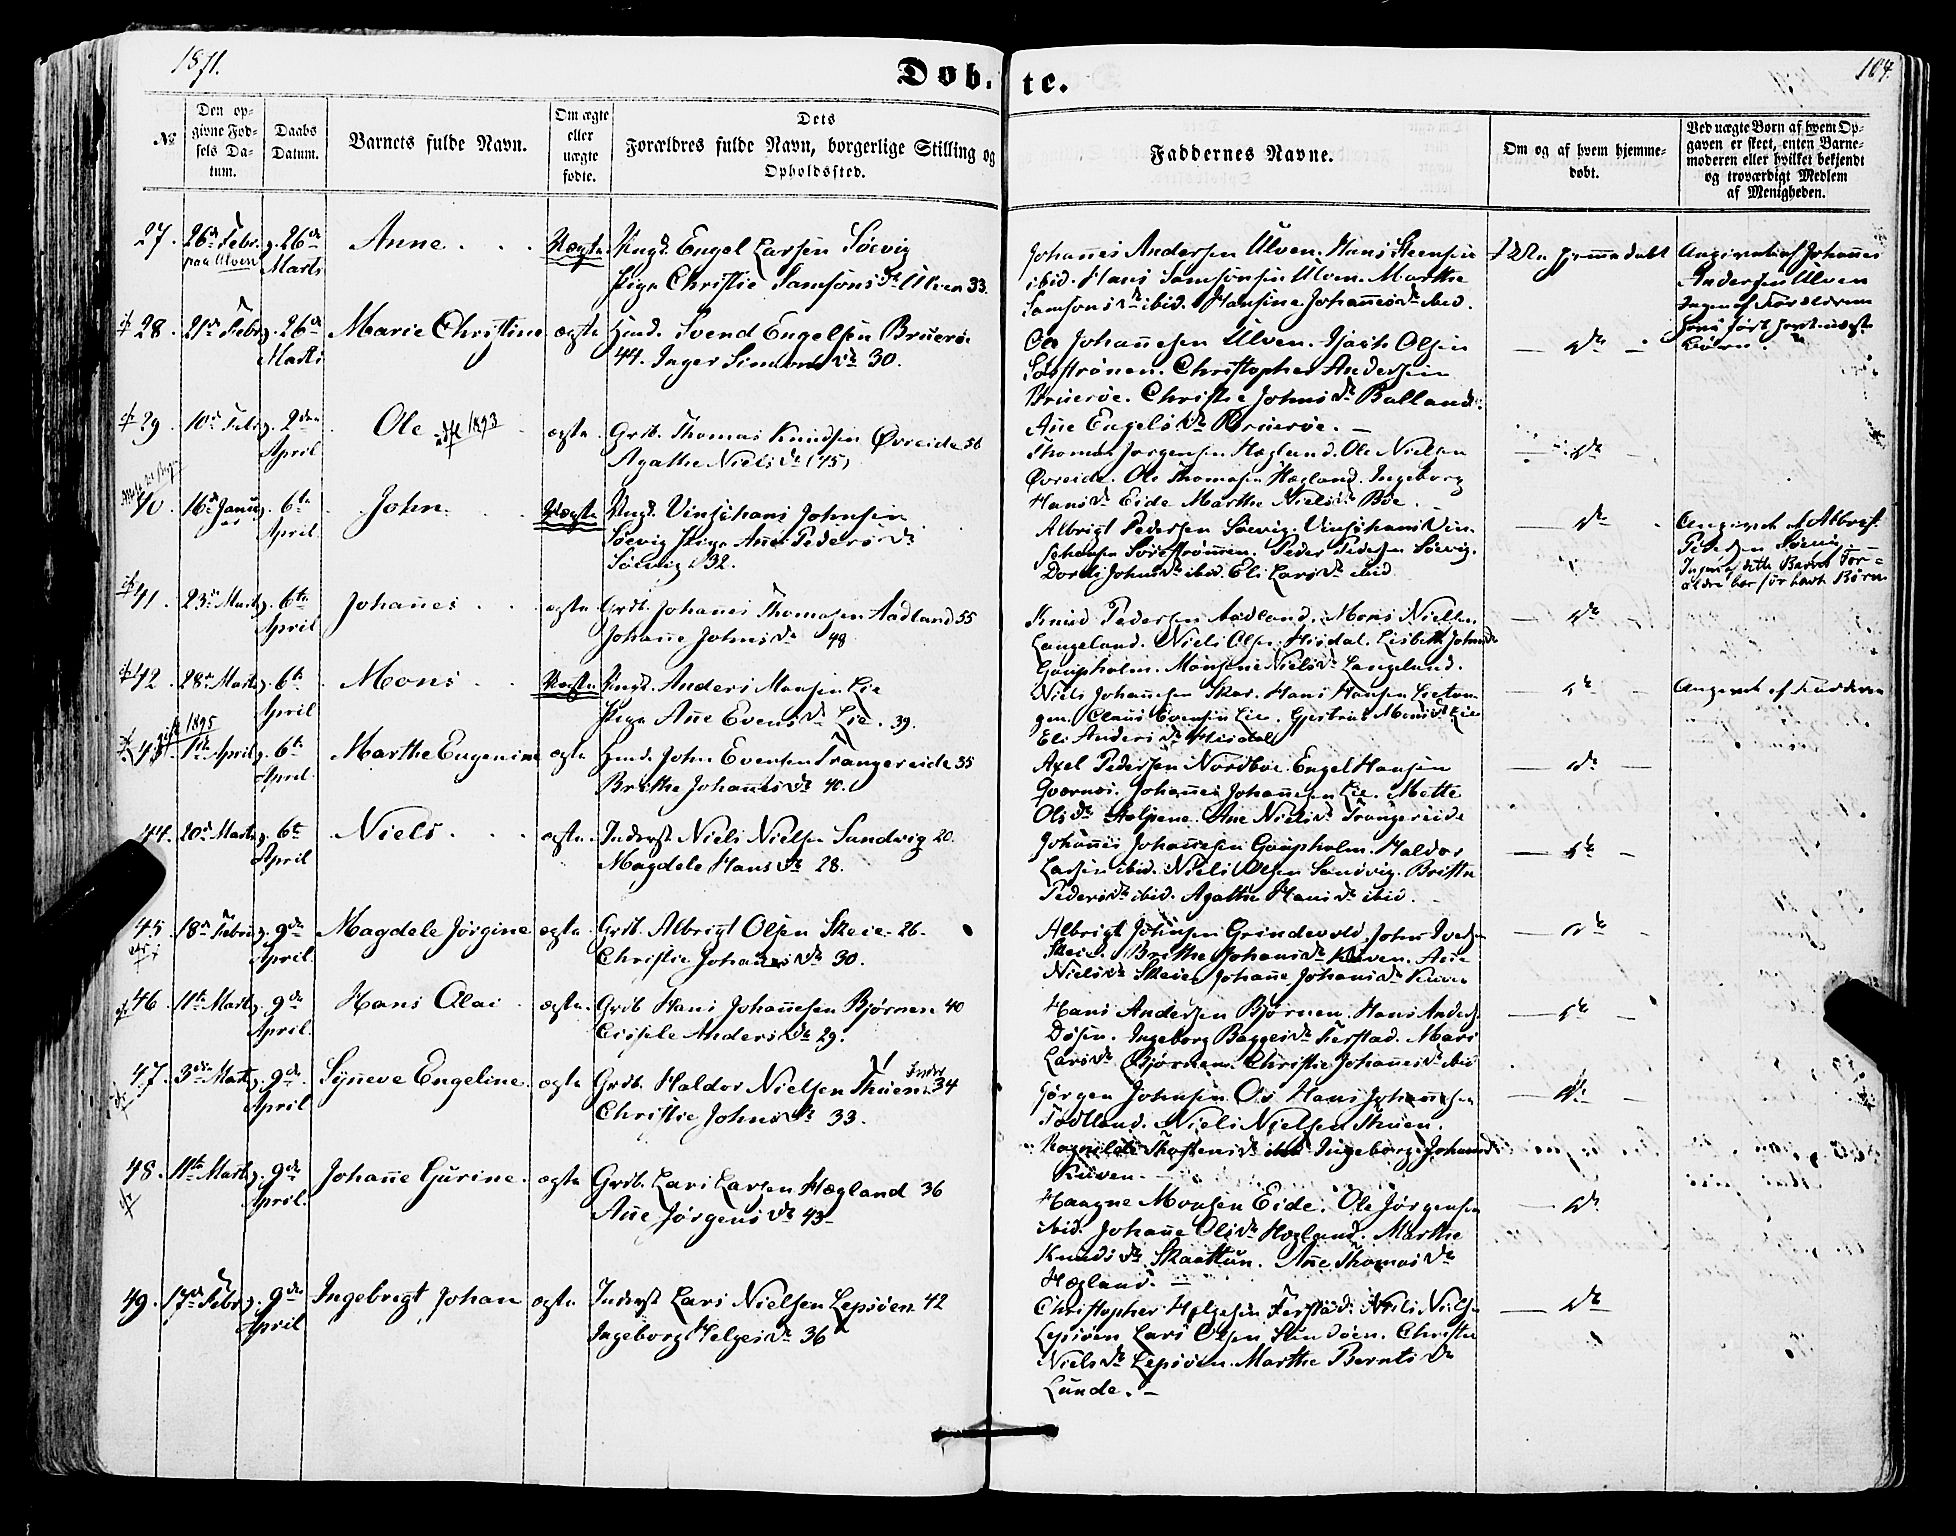 1871.
Døb-
te.
104.
No
Den op-
givne Fød-
sels Da-
tum.
Daabs
Datum.
Barnets fulde Navn.
Om ægte
eller
uægte
fødte.
Dets
Forældres fulde Navn, borgerlige Stilling og
Opholdssted.
Faddernes Navne.
Om og af hvem hjemme-
døbt.
Ved uægte Børn af hvem Op-
gaven er skeet, enten Barne-
moderen eller hvilket bekjendt
og troværdigt Medlem
af Menigheden.
27. 26de Febr. 26de Anne Uægte Ungk. Engel Larsen Søevig
paa Ulven Marts Pige Christie Samsonsdr Ulven 33.
Johannes Andersen Ulven. Hans Steensen
ibid. Hans Samsonsen Ulven. Marthe
Samsonsdr ibid. Hansine Johannesdr ibid.
Ikke hjemmedøbt
Angivet af Johannes
Andersen Ulven
Ingen af Forældrene
28. 21de Febr. 26de Marie Christine ægte Svend Engelsen Bruerøe
Marts 44. Inger Simonsdr 30.
Ole Johannesen Ulven. Olsen
Christopher Andersen
Bruerøe. Christie Johnsdr Balland
Ane Engelsdr Bruerøe.
dr
29. 10de Febr. 2den Ole 1893 ægte Grdb. Thomas Knudsen Øvreide 56
April Agathe Nielsdr (45)
Thomas Jørgensen Hægland. Ole Nielsen
Øvreide. Ole Thomasen Hægland. Ingeborg
Hansdr Eide Marthe Nielsdr Bøe.
dr
40. 16de Januar 6te John Uægte Ungk. Johnsen
April Søevig Pige Anne Pedersdr
Søevig 32.
Albrigt Pedersen Søevig.
Peder Pedersen Søevig.
Johnsdr ibid. Eli Larsdr ibid
dr
Angivet af Albrigt
Pedersen Søevig
Ingen af dette Barns For-
ældre har før havt Børn
41. 23de Marts 6te Johannes ægte Grdb. Johannes Thomasen Aadland 55
April Johanne Johnsdr 48
Knud Pedersen Aadland. Mons Nielsen
Langeland. Niels Olsen Hisdal. Lisbeth Johnsdr
Gaupholm. Monsine Nielsdr Langeland.
dr
42. 28de Marts 6te Mons Uægte Ungk. Anders Monsen Lie
April Pige Anne Evensdr Lie. 39.
Niels Johannesen Skar. Hans Hansen
Claus Evensen Lie. Gjertrud Monsdr Lie
Eli Andersdr Hisdal
dr
Angivet af Fadderne
gift 1895
43 1ste April 6te Marthe Eugenine ægte John Evensen Trangereide 35
April Brithe Johannesdr 40.
Axel Pedersen Nordbøe. Engel Hansen
Qvernøs. Johannes Johannesen Lie. Mette
Olsdr Ane Nielsdr Trangereide
dr
44. 20de Marts 6te Niels ægte Inderst Niels Nielsen Sandvig 20.
April Magdele Hansdr 28.
Johannes Johannesen Gaupholm. Haldor
Larsen ibid. Niels Olsen Sandvig. Brithe
Pedersdr ibid. Agathe Hansdr ibid.
dr
45 18de Febr. 9de Magdele Jørgine ægte Grdb. Albrigt Olsen Skeie 26.
April Christie Johannesdr 30.
Albrigt Johnsen Grindevold. John Ivers
Skeie. Brithe Johansdr Kuven. Ane
Nielsdr Skeie. Johanne Johansdr Kuven
dr
46 11te Marts 9de Hans Olai ægte Grdb Hans Johannesen Bjørnen 40
April Cissele Andersdr 29.
Hans Andersen Bjørnen. Hans Anders
Døsen. Ingeborg Baggesdr Ferstad. Mari
Larsdr Bjørnen. Christie Johannesdr ibid
dr
47. 3die Marts 9de Synneve Engeline ægte Grdb. Haldor Nielsen Thuen 34
April Christie Johnsdr 33.
Jørgen Johnsen Os Hans Johannesen
Tødland. Niels Nielsen Thuen.
Ragnilde Thorstensdr ibid Ingeborg Johannsdr
Kuven.
dr
48. 11te Marts 9de Johanne Gurine ægte Grdb. Lars Larsen Hægland 36
April Ane Jørgensdr 43
Haagne Monsen Eide. Ole Jørgensen
ibid. Johanne Olsdr Hægland. Marthe
Knudsdr Skaathun. Ane Thomasdr
Hægland.
dr
49. 17de Febr. 9de Ingebrigt Johan ægte Inderst Lars Nielsen Lepsøen 42
April Ingeborg Helgesdr 36
Christopher Helgesen Ferstad. Niels Nielsen
Lepsøen Lars Olsen Christie
Nielsdr Lepsøen. Marthe Berntsdr
Lunde.
dr